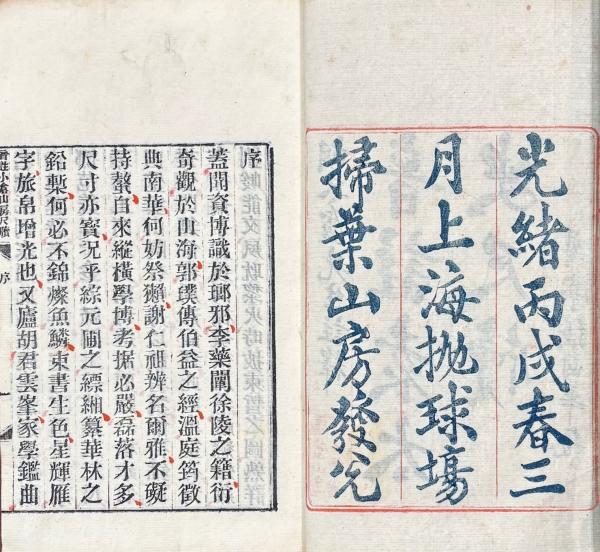 光緒丙戌春三
月上海拋球場
掃葉山房發兌
序
蓋聞資博識於瑯邪李藥闡徐陵之籍衍
奇觀於山海郭璞傳伯益之經溫庭筠徵
典南華何妨祭獺謝仁祖辨名爾雅不礙
持螯自來縱橫學博考据必嚴磊落才多
尺寸亦寳况乎綜元圃之縹緗纂華林之
鉛槧何必不錦燦魚鱗束書生色星輝雁
字旅帛增光也又廬胡君雲峯家學鑑曲
音註小倉山房尺牘
序